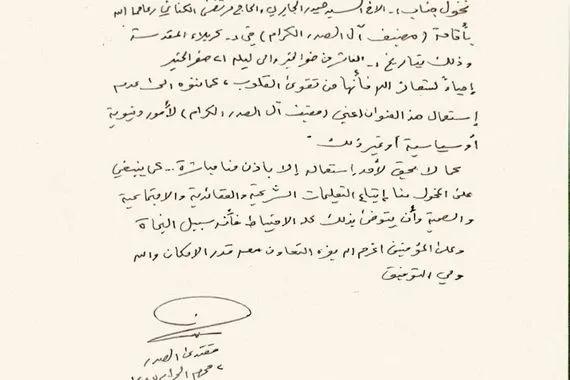 نخول جناب : الاخ السيد حيدر الجابري والحاج مرتضى الكناني رعاهما الله
بأقامة (مضيف آل الصدر الكرام) في : كربلاء المقدسة
وذلك بتاريخ : العاشر من صفر الخير الى ليلة ٢١ صفر الخير
إحياءً لشعائر الله فأنها من تقوى القلوب ، على
إستعمال هذا العنوان اعني (مضيف آل الصدر الكرام) لأمور دنيوية
أو سياسية أو غير ذلك
كما لا يحق لأحد إستعماله إلا بإذن منا مباشرة ... كما ينبغي
على المخول منا إتباع التعليمات الشرعية والعقائدية والاجتماعية
والصحية وأن يتوخى بذلك الاحتياط فأنه سبيل النجاة
وعلى المؤمنين اعزهم الله التعاون معه قدر الامكان والله
ولي التوفيق
مقتدى الصدر
٢ محرم الحرام